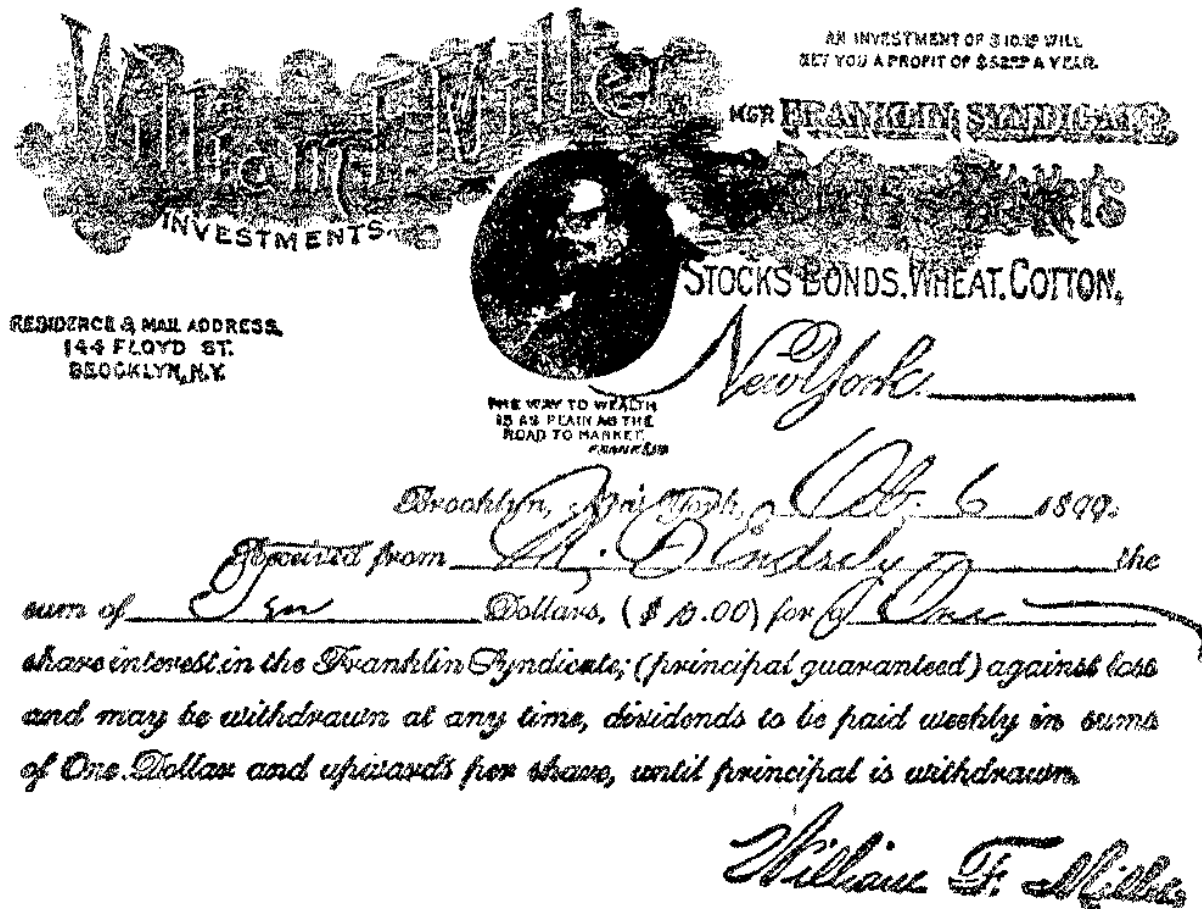 William F. Miller
INVESTMENTS.
AN INVESTMENT OF $10.00 WILL
NET YOU A PROFIT OF $52.00 A YEAR.
MGR FRANKLIN SYNDICATE,
STOCKS BONDS, WHEAT, COTTON,
RESIDENCE & MAIL ADDRESS,
144 FLOYD ST.
BROOKLYN, N.Y.
THE WAY TO WEALTH
IS AS PLAIN AS THE
ROAD TO MARKET.
FRANKLIN
New York
Brooklyn, New York, Oct. 6 1899.
Received from the
sum of Ten Dollars, ($10.00) for a One
share interest in the Franklin Syndicate; (principal guaranteed) against loss
and may be withdrawn at any time, dividends to be paid weekly in sums
of One Dollar and upwards per share, until principal is withdrawn.
William F. Miller